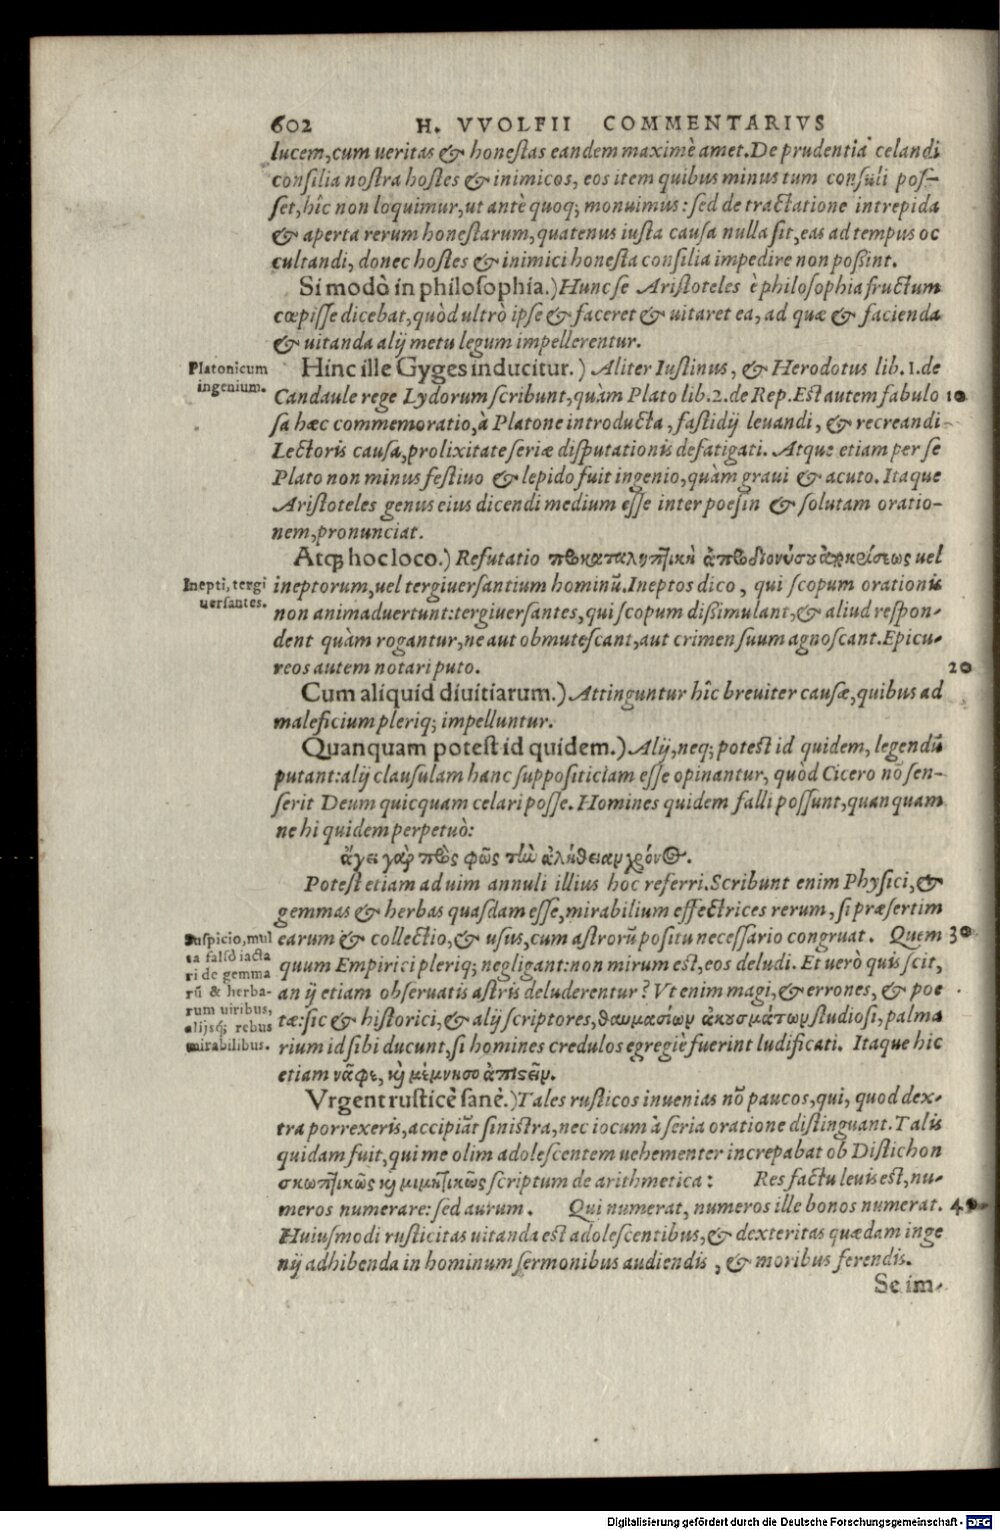 602 H. VVOLFII COMMENTARIVS
lucem, cum ueritas & honestas eandem maximè amet. De prudentia celandi
consilia nostra hostes & inimicos, eos item quibus minus tum consuli pos-
set, hîc non loquimur, ut antè quoq; monuimus: sed de tractatione intrepida
& aperta rerum honestarum, quatenus iusta causa nulla sit, eas ad tempus oc
cultandi, donec hostes & inimici honesta consilia impedire non poßint.
Si modò in philosophia.) Hunc se Aristoteles è philosophia fructum
cœpisse dicebat, quòd ultrò ipse & faceret & uitaret ea, ad quæ & facienda
& uitanda alij metu legum impellerentur.
Platonicum
ingenium.
Hinc ille Gyges inducitur.) Aliter Iustinus, & Herodotus lib. 1. de
Candaule rege Lydorum scribunt, quàm Plato lib. 2. de Rep. Est autem fabulo 10
sa hæc commemoratio, à Platone introducta, fastidij leuandi, & recreandi
Lectoris causa, prolixitate seriæ disputationis defatigati. Atque etiam per se
Plato non minus festiuo & lepido fuit ingenio, quàm graui & acuto. Itaque
Aristoteles genus eius dicendi medium esse inter poesin & solutam oratio-
nem, pronunciat.
Atq; hoc loco.) Refutatio uel
Inepti, tergi
uersantes.
ineptorum, uel tergiuersantium hominũ. Ineptos dico, qui scopum orationis
non animaduertunt: tergiuersantes, qui scopum dißimulant, & aliud respon-
dent quàm rogantur, ne aut obmutescant, aut crimen suum agnoscant. Epicu-
reos autem notari puto. 20
Cum aliquid diuitiarum.) Attinguntur hîc breuiter causæ, quibus ad
maleficium pleriq; impelluntur.
Quanquam potest id quidem.) Alij, neq; potest id quidem, legendũ
putant: alij clausulam hanc suppositiciam esse opinantur, quòd Cicero nõ sen-
serit Deum quicquam celari posse. Homines quidem falli possunt, quanquam
ne hi quidem perpetuò:
ἄγει γὰρ πρὸς φῶς τὴν ἀλήθειαν χρόνος.
Potest etiam ad uim annuli illius hoc referri. Scribunt enim Physici, &
gemmas & herbas quasdam esse, mirabilium effectrices rerum, si præsertim
Suspicio, mul
ta falsò iacta
ri de gemma
rũ & herba-
rum uiribus,
alijsq; rebus
mirabilibus.
earum & collectio, & usus, cum astrorũ positu necessario congruat. Quem 30
quum Empirici pleriq; negligant: non mirum est, eos deludi. Et uerò quis scit,
an ij etiam obseruatis astris deluderentur? Vt enim magi, & errones, & poe
tæ: sic & historici, & alij scriptores, θαυμασίων ἀκουσμάτων studiosi, palma
rium id sibi ducunt, si homines credulos egregiè fuerint ludificati. Itaque hic
etiam νᾶφε, καὶ μέμνησο ἀπιστεῖν.
Vrgent rusticè sanè.) Tales rusticos inuenias nõ paucos, qui, quod dex-
tra porrexeris, accipiãt sinistra, nec iocum à seria oratione distinguant. Talis
quidam fuit, qui me olim adolescentem uehementer increpabat ob Distichon
σκωπτικῶς καὶ μιμητικῶς scriptum de arithmetica: Res factu leuis est, nu-
meros numerare: sed aurum. Qui numerat, numeros ille bonos numerat. 40
Huiusmodi rusticitas uitanda est adolescentibus, & dexteritas quædam inge
nij adhibenda in hominum sermonibus audiendis, & moribus ferendis.
Se im-
Digitalisierung gefördert durch die Deutsche Forschungsgemeinschaft - DFG